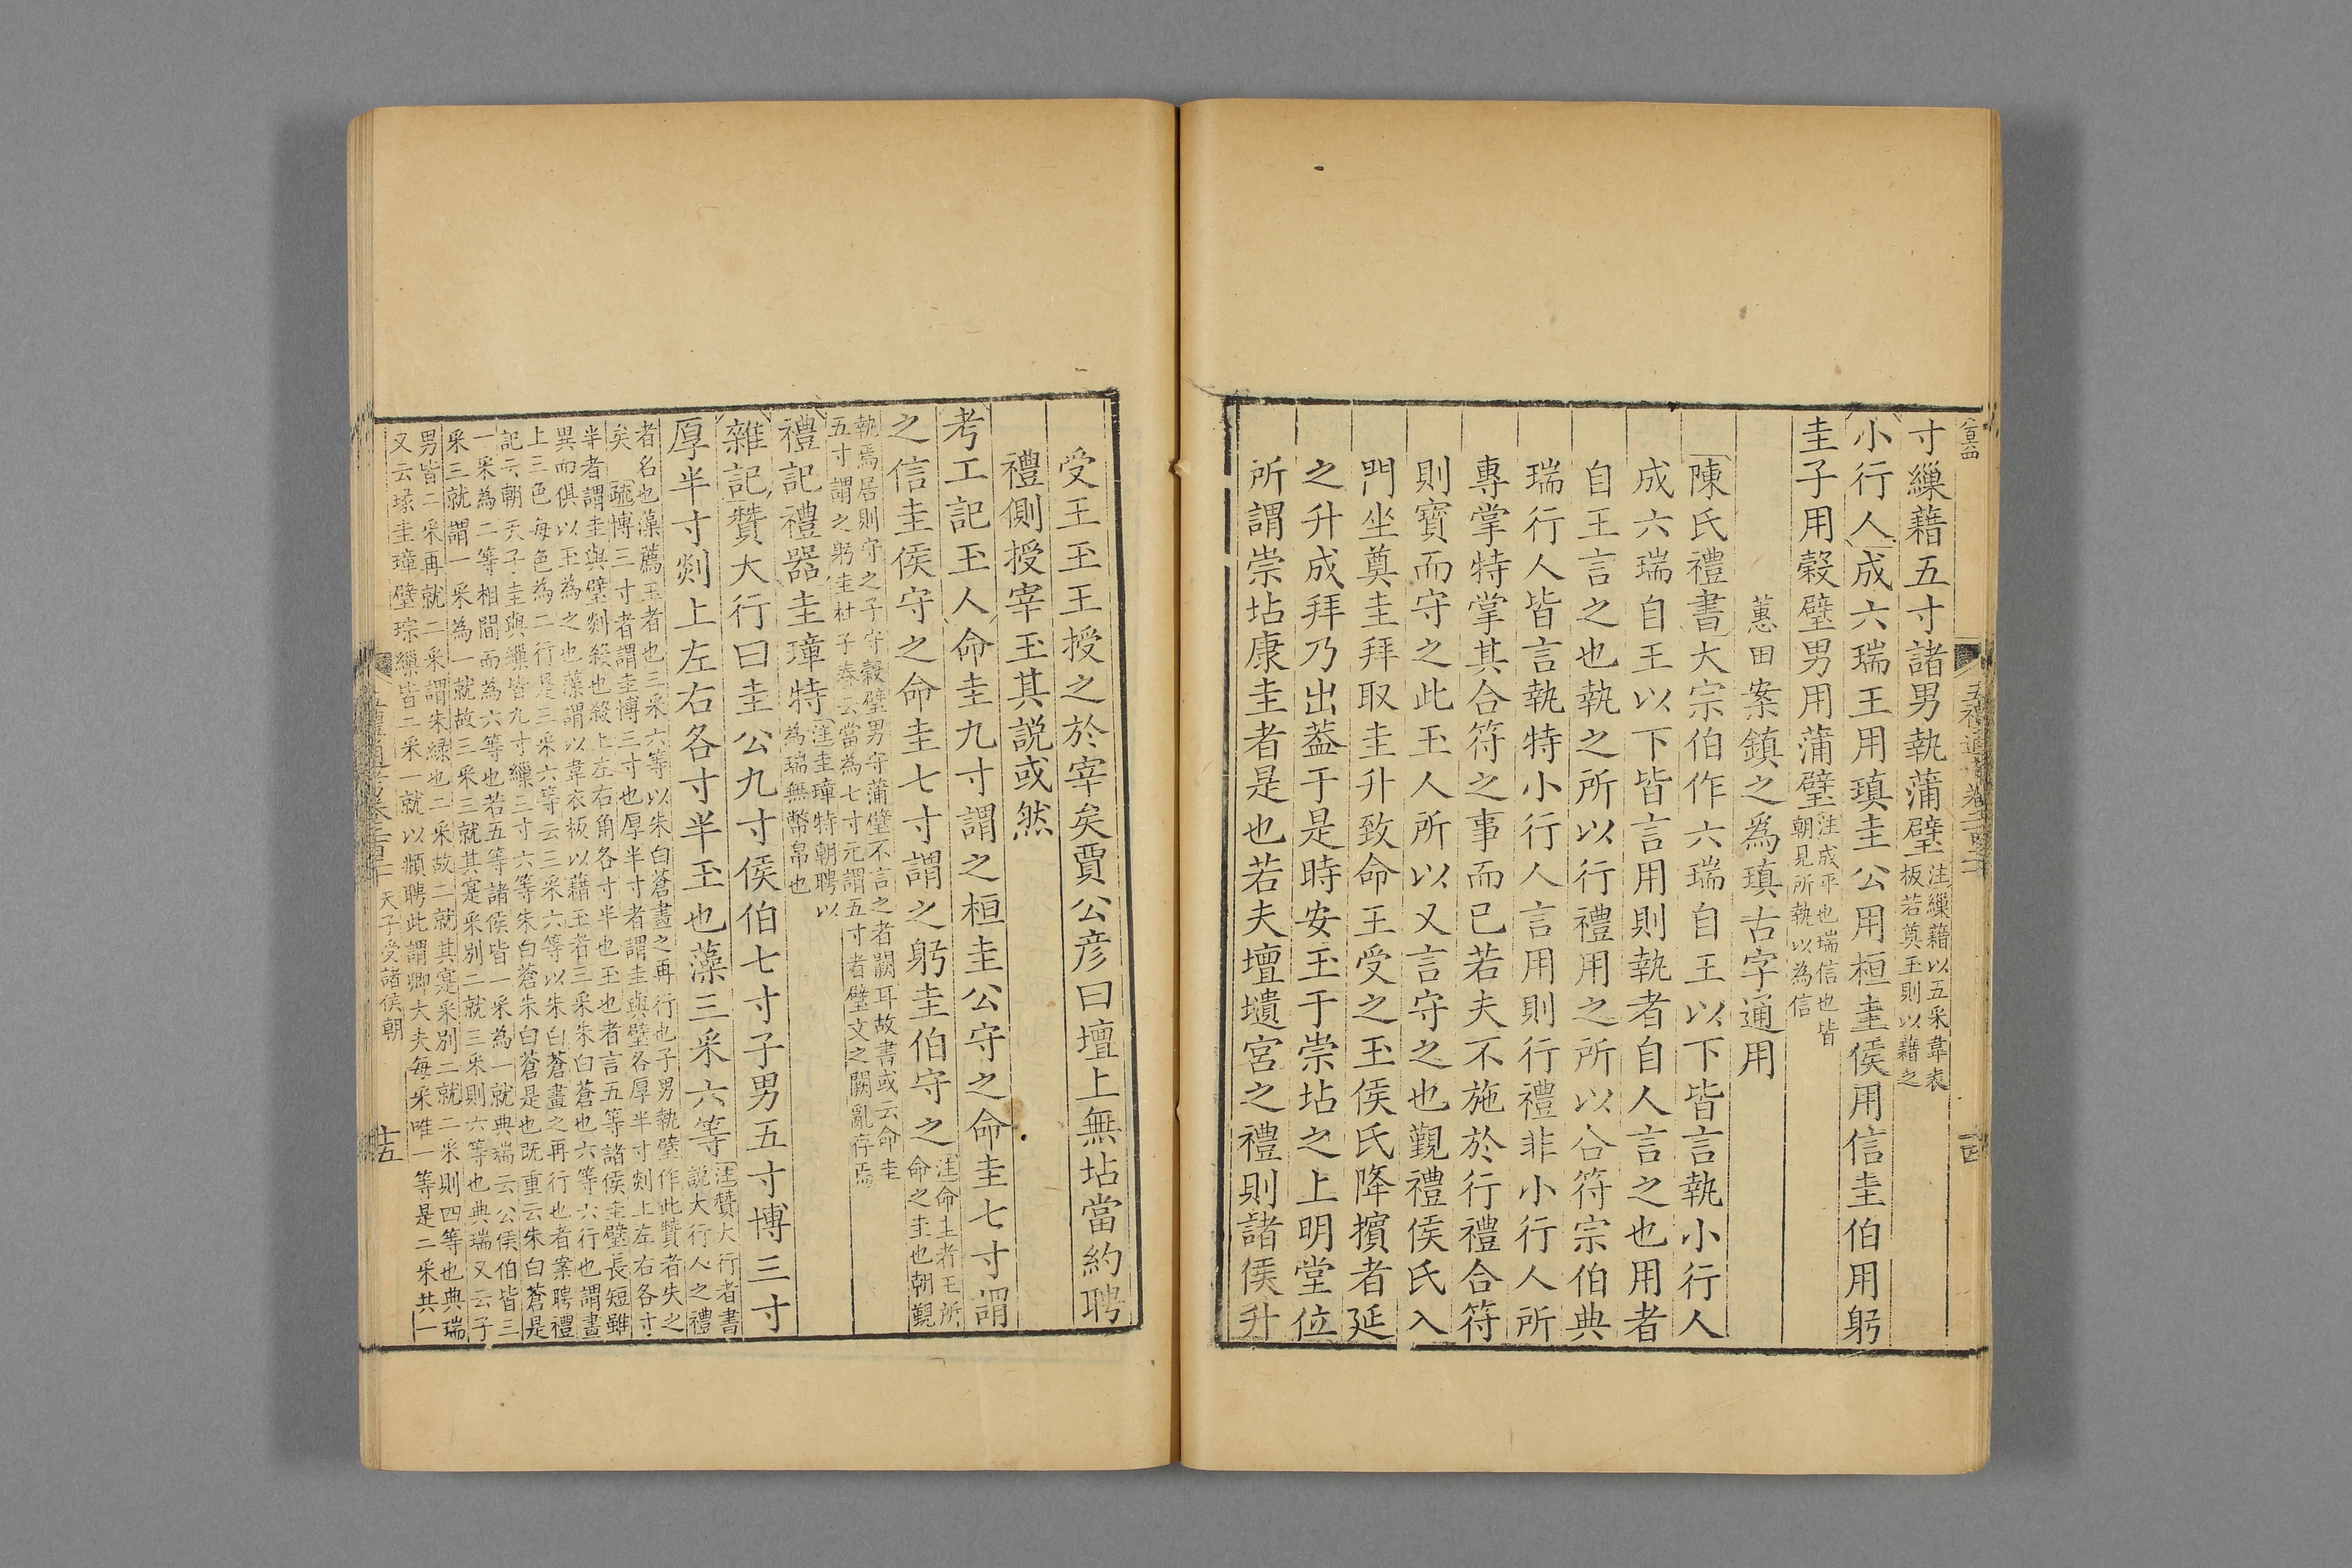 寸繅藉五寸諸男執蒲璧注繅藉以五采韋衣板若奠玉則以藉之
小行人成六瑞王用瑱圭公用桓圭侯用信圭伯用躬
圭子用穀璧男用蒲璧注成平也瑞信也皆朝見所執以為信
蕙田案鎮之為瑱古字通用
陳氏禮書大宗伯作六瑞自王以下皆言執小行人
成六瑞自王以下皆言用則執者自人言之也用者
自王言之也執之所以行禮用之所以合符宗伯典
瑞行人皆言執特小行人言用則行禮非小行人所
專掌特掌其合符之事而已若夫不施於行禮合符
則寶而守之此玉人所以又言守之也覲禮侯氏入
門坐奠圭拜取圭升致命王受之玉侯氏降擯者延
之升成拜乃出葢于是時安玉于崇坫之上明堂位
所謂崇坫康圭者是也若夫壇壝宮之禮則諸侯升
受王玉王授之於宰矣賈公彦曰壇上無坫當約聘
禮側授宰玉其説或然
考工記玉人命圭九寸謂之桓圭公守之命圭七寸謂
之信圭侯守之命圭七寸謂之躬圭伯守之注命圭者王所命之圭也朝覲
執焉居則守之子守穀璧男守蒲璧不言之者闕耳故書或云命圭
五寸謂之躬圭杜子春云當為七寸元謂五寸者璧文之闕亂存焉
禮記禮器圭璋特注圭璋特朝聘以為瑞無幣帛也
雜記贊大行曰圭公九寸侯伯七寸子男五寸博三寸
厚半寸剡上左右各寸半玉也藻三采六等注贊大行者書說大行人之禮
者名也藻薦玉者也三采六等以朱白蒼畫之再行也子男執璧作此贊者失之
矣疏博三寸者謂圭博三寸也厚半寸者謂圭與璧各厚半寸剡上左右各寸
半者謂圭與璧剡殺也殺上左右角各寸半也玉也者言五等諸侯圭璧長短雖
異而俱以玉為之也藻謂以韋衣板以藉玉者三采朱白蒼也六等六行也謂畫
上三色每色為二行是三采六等云三采六等以朱白蒼畫之再行也者案聘禮
記云朝天子圭與繅皆九寸繅三寸六等朱白蒼朱白蒼是也既重云朱白蒼是
一采為二等相間而為六等也若五等諸侯皆一采為一就典瑞云公侯伯皆三
采三就謂一采為一就故三采三就其寔采別二就三采則六等也典瑞又云子
男皆二采再就二采謂朱綠也二采故二就其寔采別二就二采則四等也典瑞
又云瑑圭璋璧琮繅皆二采一就以頫聘此謂卿大夫每采唯一等是二采共一
天子受諸侯朝
十五